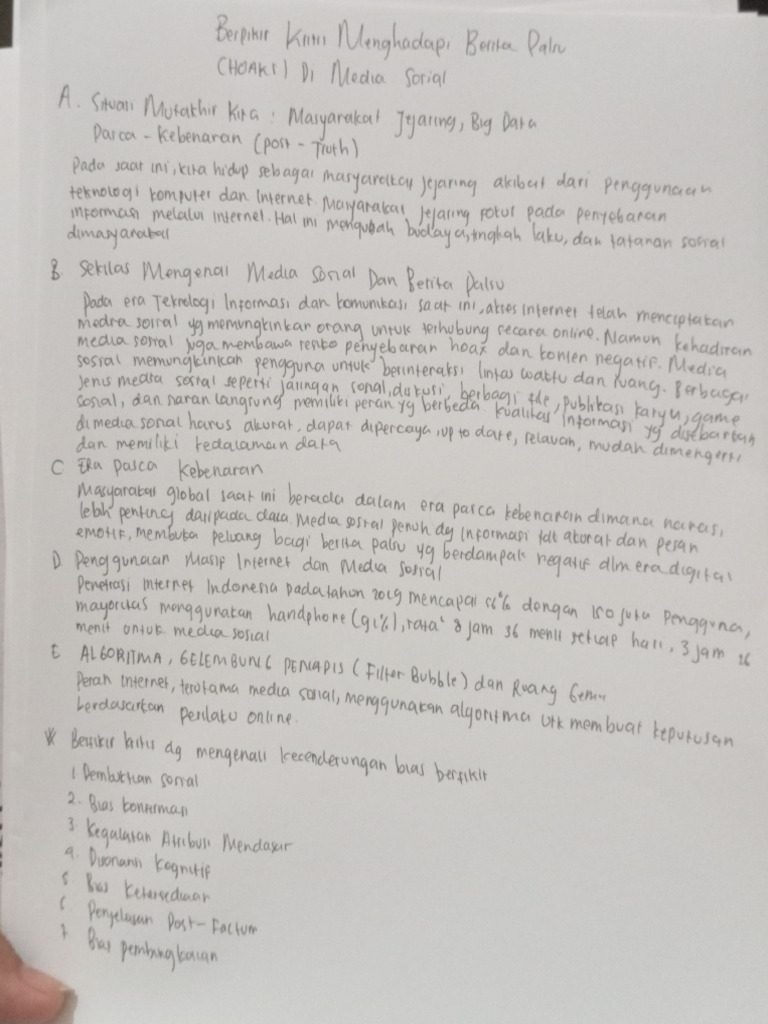 Berpikir Kritis Menghadapi Berita Palsu
(HOAKS) Di Media Sosial
A. Situasi Mutakhir Kita : Masyarakat Jejaring, Big Data
Pasca - Kebenaran (Post - Truth)
Pada saat ini, kita hidup sebagai masyarakat jejaring akibat dari penggunaan
teknologi komputer dan Internet. Masyarakat Jejaring fokus pada penyebaran
informasi melalui internet. Hal ini mengubah budaya, tingkah laku, dan tatanan sosial
dimasyarakat
B. Sekilas Mengenai Media Sosial Dan Berita Palsu
Pada era Teknologi Informasi dan komunikasi saat ini, akses internet telah menciptakan
media sosial yg memungkinkan orang untuk terhubung secara online. Namun kehadiran
media sosial juga membawa resiko penyebaran hoax dan konten negatif. Media
sosial memungkinkan pengguna untuk berinteraksi lintas waktu dan ruang. Berbagai
Jenis media sosial seperti jaringan sosial, diskusi, berbagi ide, publikasi karya, game
sosial, dan siaran langsung memiliki peran yg berbeda kualitas informasi yg disebarkan
di media sosial harus akurat, dapat dipercaya, up to date, relavan, mudah dimengerti,
dan memiliki kedalaman data
C Era Pasca Kebenaran
Masyarakat global saat ini berada dalam era pasca kebenaran dimana narasi
lebih penting daripada data Media sosial penuh dg informasi tdk akurat dan pesan
emotif, membuka peluang bagi berita palsu yg berdampak negatif dlm era digital
D. Penggunaan Masif Internet dan Media Sosial
Penetrasi Internet Indonesia pada tahun 2019 mencapai 56% dengan 150 juta Pengguna,
mayoritas menggunakan handphone (91%), rata² 8 jam 36 menit setiap hari, 3 jam 26
menit untuk media sosial
E ALGORITMA, GELEMBUNG PENAPIS (Filter Bubble) dan Ruang Gema
Peran Internet, terutama media sosial, menggunakan algoritma utk membuat keputusan
berdasarkan perilaku online.
* Berfikir kritis dg mengenali kecenderungan bias berfikir
1 Pembuktian sosial
2. Bias konfirmasi
3. Kegalatan Atribusi Mendasar
4. Disonansi Kognitif
5 Bias Ketersediaan
6 Penjelasan Post-Factum
7 Bias pembingkaian